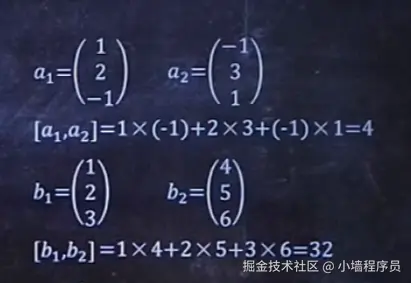 a₁=(1 2 -1) a₂=(-1 3 1)
[a₁,a₂]=1×(-1)+2×3+(-1)×1=4
b₁=(1 2 3) b₂=(4 5 6)
[b₁,b₂]=1×4+2×5+3×6=32
掘金技术社区 @ 小墙程序员